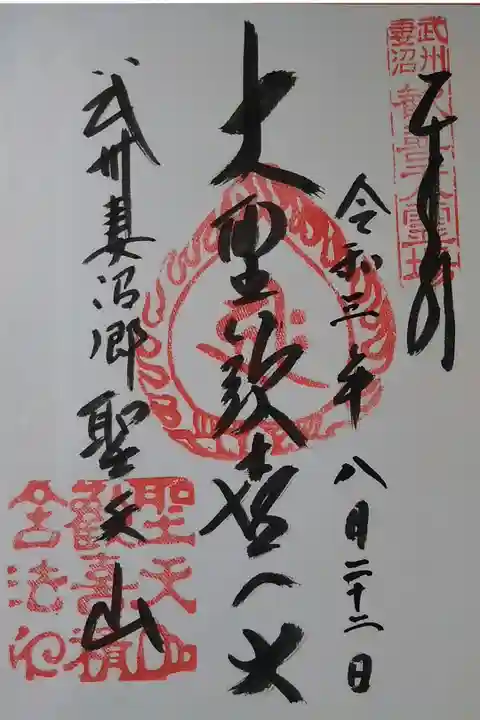 奉拝
武州
妻沼
歓喜天霊場
令和三年八月二十二日
大聖歓喜天
武州妻沼郷聖天山
聖天山
歓喜積